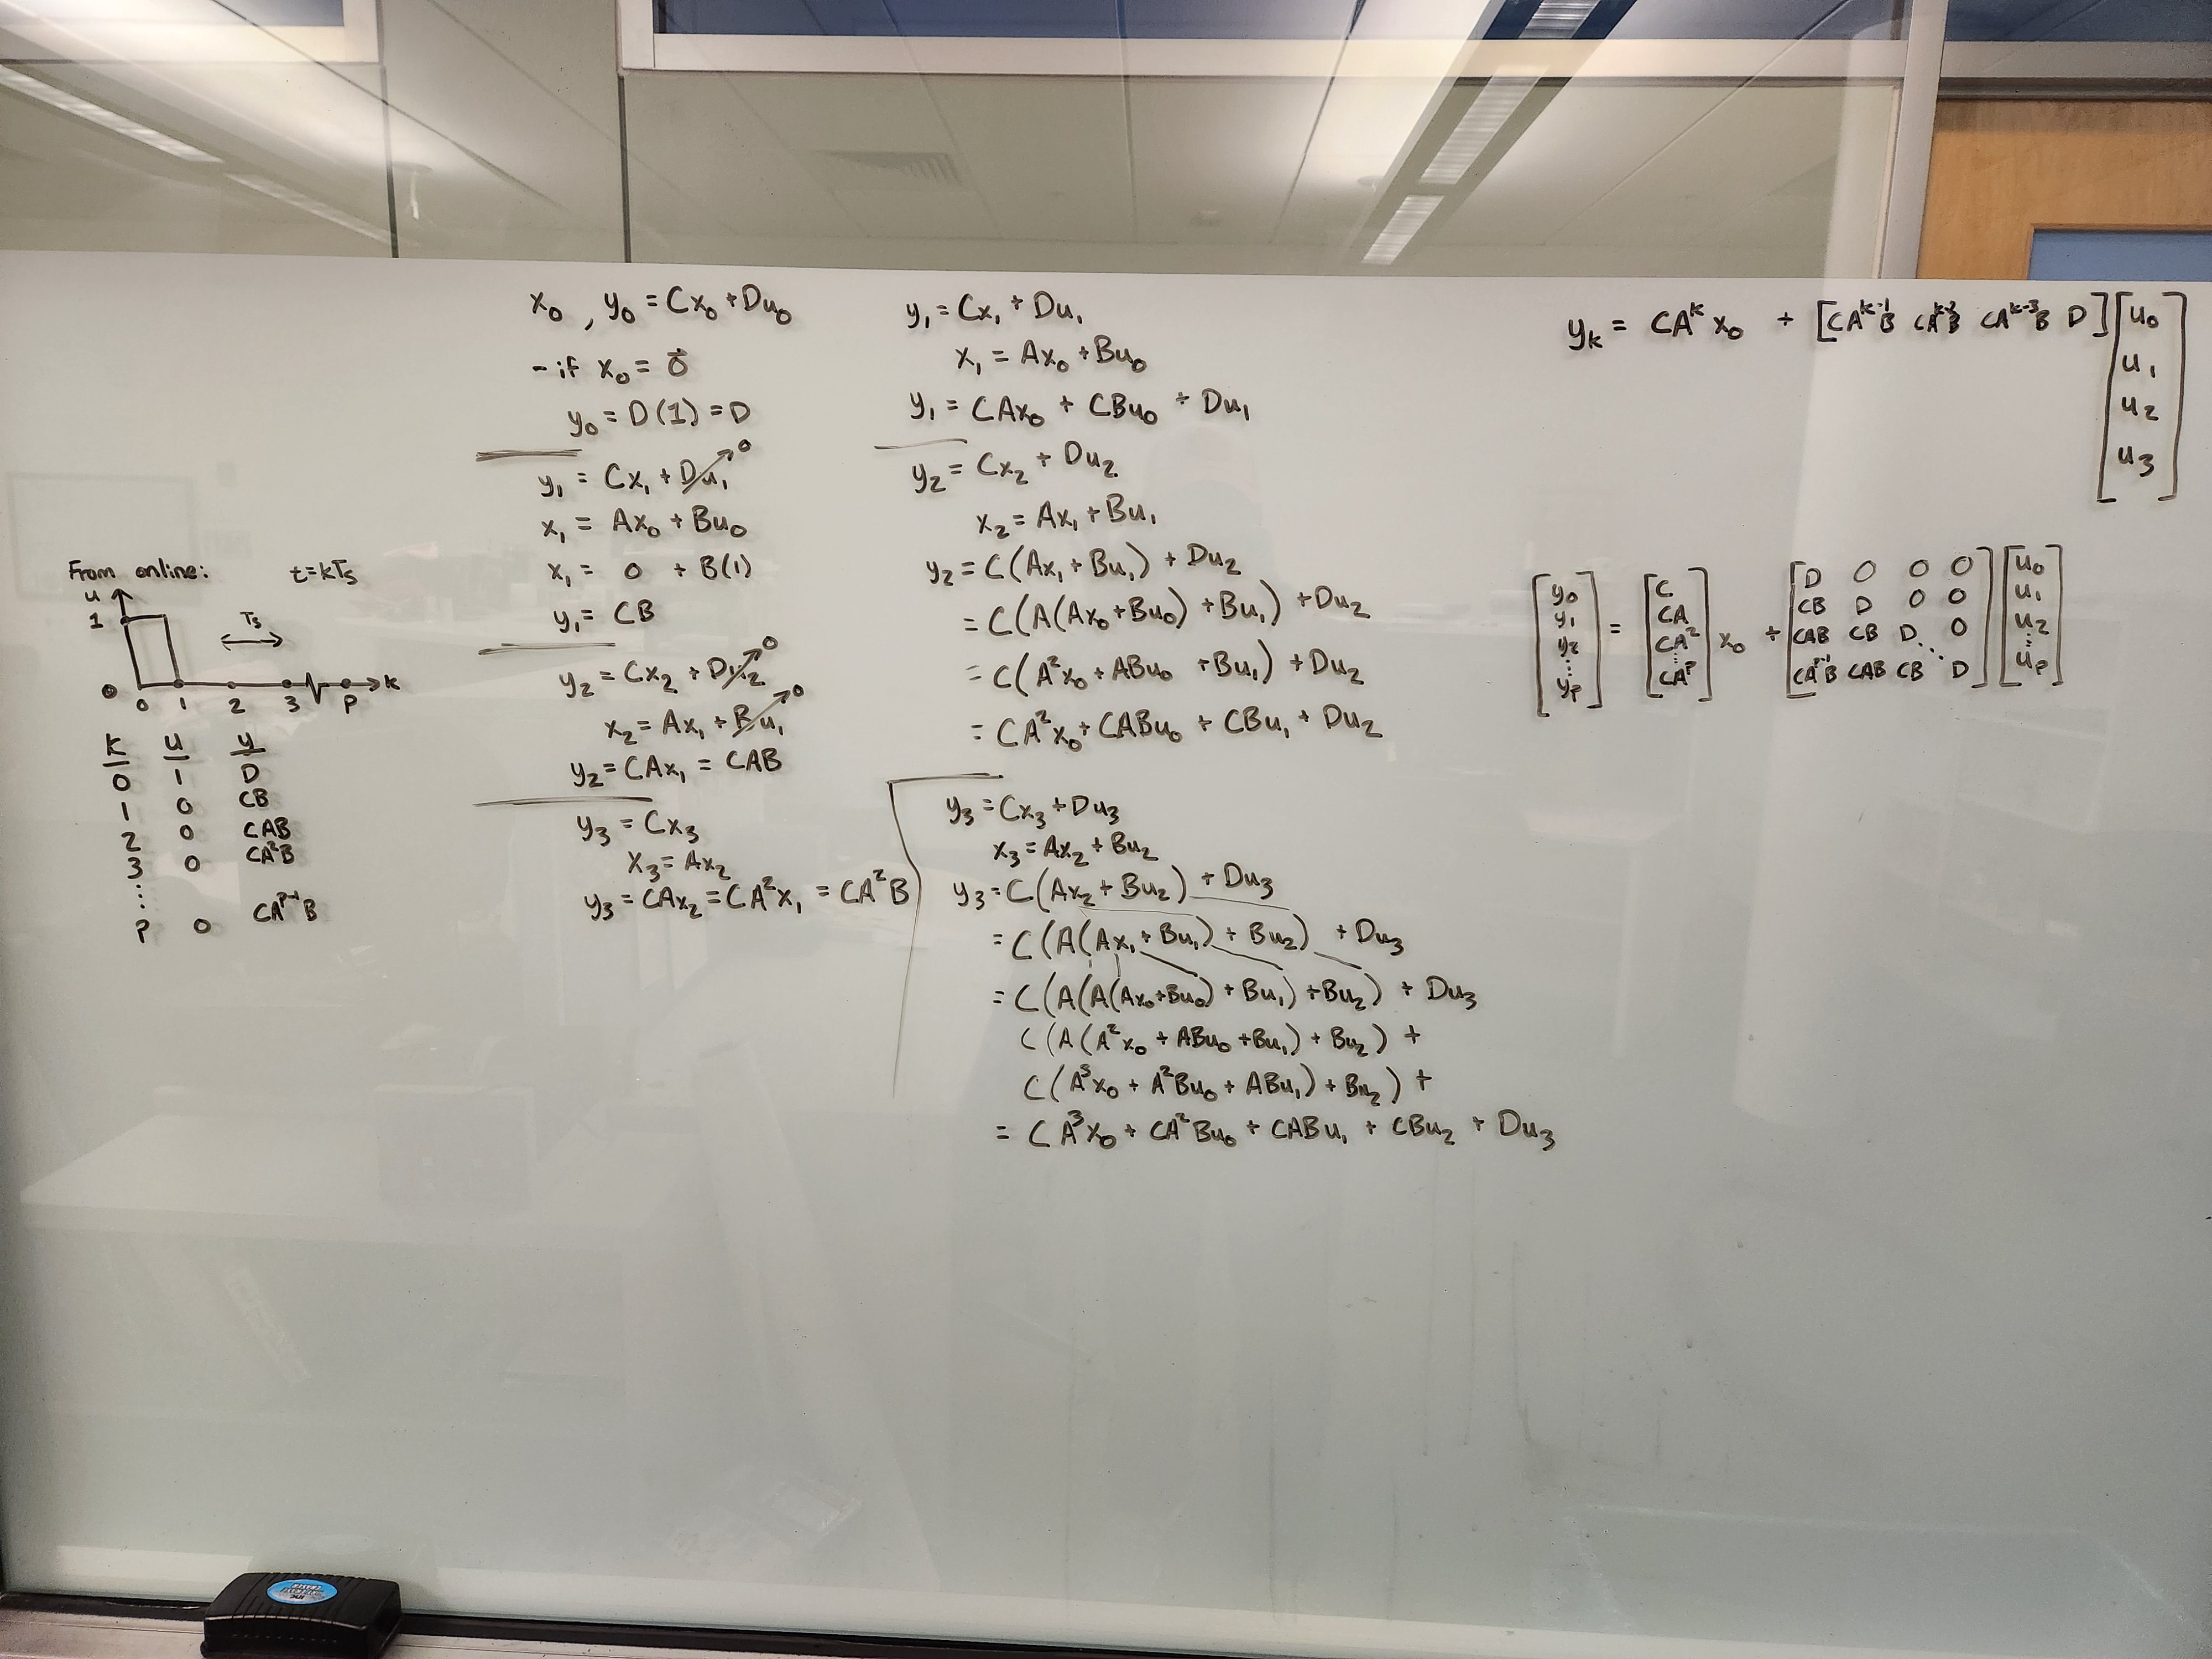 From online: t=kTs
u
1
Ts
0
k
0 1 2 3 P
k u y
0 1 D
1 0 CB
2 0 CAB
3 0 CA²B
⋮
P 0 CA^{P-1}B
x₀, y₀ = Cx₀ + Du₀
- if x₀ = 0⃗
y₀ = D(1) = D
y₁ = Cx₁ + Du₁ → 0
x₁ = Ax₀ + Bu₀
x₁ = 0 + B(1)
y₁ = CB
y₂ = Cx₂ + Du₂ → 0
x₂ = Ax₁ + Bu₁ → 0
y₂ = CAx₁ = CAB
y₃ = Cx₃
x₃ = Ax₂
y₃ = CAx₂ = CA²x₁ = CA²B
y₁ = Cx₁ + Du₁
x₁ = Ax₀ + Bu₀
y₁ = CAx₀ + CBu₀ + Du₁
y₂ = Cx₂ + Du₂
x₂ = Ax₁ + Bu₁
y₂ = C(Ax₁ + Bu₁) + Du₂
= C(A(Ax₀ + Bu₀) + Bu₁) + Du₂
= C(A²x₀ + ABu₀ + Bu₁) + Du₂
= CA²x₀ + CABu₀ + CBu₁ + Du₂
y₃ = Cx₃ + Du₃
x₃ = Ax₂ + Bu₂
y₃ = C(Ax₂ + Bu₂) + Du₃
= C(A(Ax₁ + Bu₁) + Bu₂) + Du₃
= C(A(A(Ax₀ + Bu₀) + Bu₁) + Bu₂) + Du₃
C(A(A²x₀ + ABu₀ + Bu₁) + Bu₂) +
C(A³x₀ + A²Bu₀ + ABu₁) + Bu₂) +
= CA³x₀ + CA²Bu₀ + CABu₁ + CBu₂ + Du₃
y_k = CA^k x₀ + [CA^{k-1}B CA^{k-2}B CA^{k-3}B D] [u₀
u₁
u₂
u₃]
[y₀ [C [D 0 0 0 [u₀
y₁ CA CB D 0 0 u₁
y₂ = CA² x₀ + CAB CB D 0 u₂
⋮ ⋮ ⋱ ⋮
y_P] CA^P] CA^{P-1}B CAB CB D] u_P]